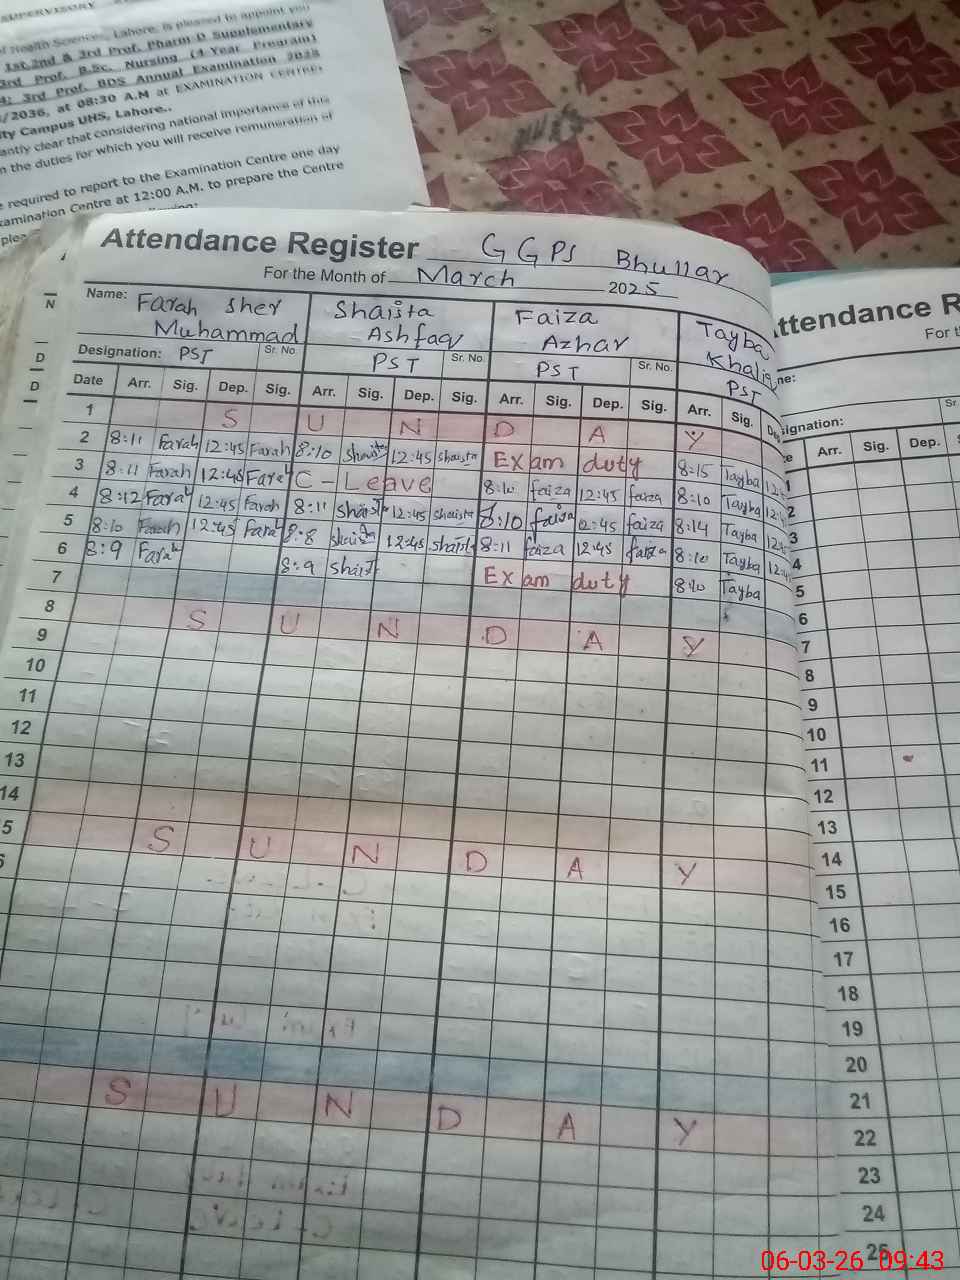 SUPERVISORY
of Health Sciences, Lahore, is pleased to appoint you
1st, 2nd & 3rd Prof. Pharm D Supplementary
3rd Prof. B.Sc. Nursing (4 Year Program)
3rd Prof. BDS Annual Examination
/2036, at 08:30 A.M at EXAMINATION CENTRE:
ity Campus UHS, Lahore..
antly clear that considering national importance of this
n the duties for which you will receive remuneration of
required to report to the Examination Centre one day
xamination Centre at 12:00 A.M. to prepare the Centre
Attendance Register GGPS Bhullar
For the Month of March 2025
Name: Farah Sher Muhammad Shaista Ashfaq Faiza Azhar Tayba Khaliq
Designation: PST Sr. No. PST Sr. No. PST Sr. No. PST
Date Arr. Sig. Dep. Sig. Arr. Sig. Dep. Sig. Arr. Sig. Dep. Sig. Arr. Sig. De
1 S U N D A Y
2 8:11 Farah 12:45 Farah 8:10 Shaista 12:45 shaista Exam duty 8:15 Tayba 12:4
3 8:11 Farah 12:45 Farah C-Leave 8:10 faiza 12:45 faiza 8:10 Tayba
4 8:12 Farah 12:45 Farah 8:11 Shaista 12:45 shaista 8:10 faiza 12:45 faiza 8:14 Tayba
5 8:10 Farah 12:45 Farah 8:8 shaista 12:45 shaist 8:11 faiza 12:45 faiza 8:10 Tayba 12:4
6 8:9 Farah 8:9 Shaist Exam duty 8:10 Tayba
7
8 S U N D A Y
9
10
11
12
13
14
5 S U N D A Y
S U N D A Y
ttendance R
For t
me:
signation: Sr.
Arr. Sig. Dep.
1
2
3
4
5
6
7
8
9
10
11
12
13
14
15
16
17
18
19
20
21
22
23
24
25
06-03-26 09:43